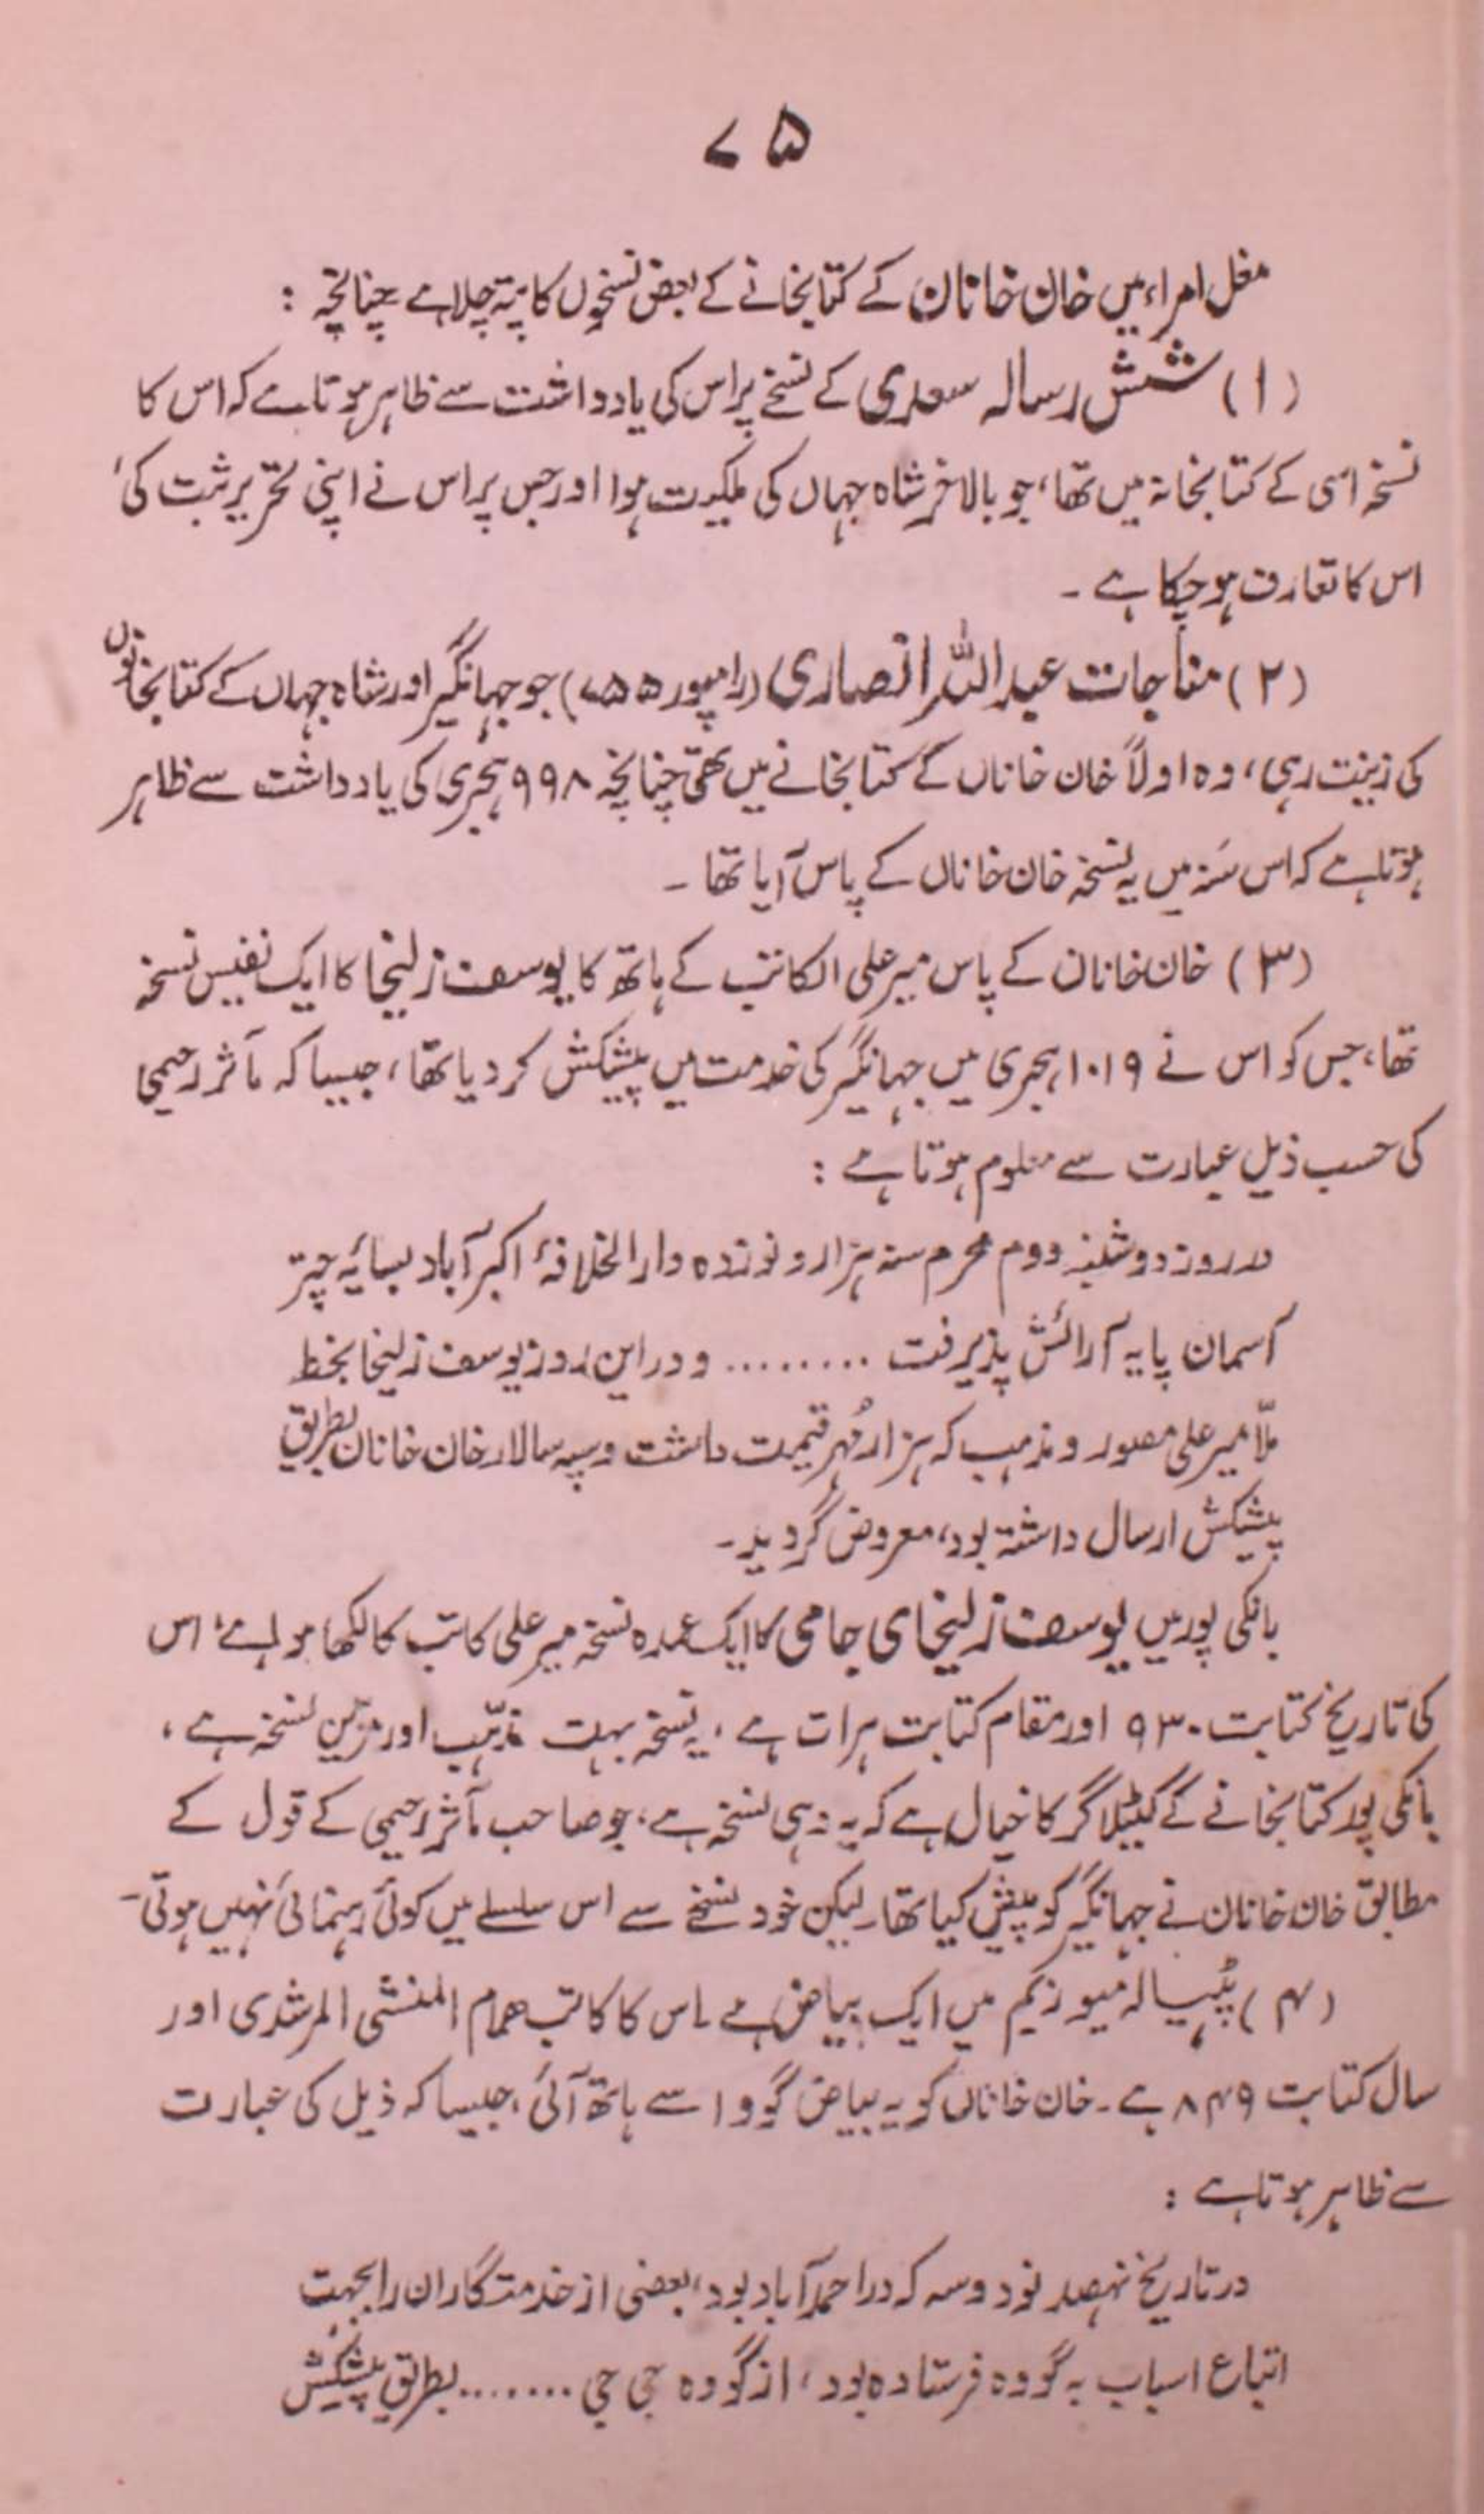 ۷۵
مغل امراء میں خان خانان کے کتابخانے کے بعض نسخوں کا پتہ چلا ہے چنانچہ :
(۱) شش رسالہ سعدی کے نسخے پر اس کی یادداشت سے ظاہر ہوتا ہے کہ اس کا
نسخہ اسی کے کتابخانہ میں تھا، جو بالاخر شاہ جہاں کی ملکیت ہوا اور جس پر اس نے اپنی تحریر ثبت کی،
اس کا تعارف ہو چکا ہے ۔
(۲) مناجات عبداللہ انصاری (رامپور ۷۵۵) جو جہانگیر اور شاہ جہاں کے کتابخانوں
کی زینت رہی، وہ اولاً خان خاناں کے کتابخانے میں تھی چنانچہ ۹۹۸ ہجری کی یادداشت سے ظاہر
ہوتا ہے کہ اس سَنہ میں یہ نسخہ خان خاناں کے پاس آیا تھا ۔
(۳) خان خانان کے پاس میر علی الکاتب کے ہاتھ کا یوسف زلیخا کا ایک نفیس نسخہ
تھا، جس کو اس نے ۱۰۱۹ ہجری میں جہانگیر کی خدمت میں پیشکش کر دیا تھا، جیسا کہ مآثر رحیمی
کی حسب ذیل عبارت سے معلوم ہوتا ہے :
در روز دوشنبہ دوم محرم سنہ ہزار و نوزدہ دارالخلافۂ اکبرآباد بسایۂ چتر
آسمان پایہ آرائش پذیرفت ......... و در این روز یوسف زلیخا بخط
ملّا میر علی مصور و مذہب کہ ہزار مُہر قیمت داشت و سپہ سالار خان خانان بطریق
پیشکش ارسال داشتہ بود، معروض گردید۔
بانکی پور میں یوسف زلیخای جامی کا ایک عمدہ نسخہ میر علی کاتب کا لکھا ہوا ہے، اس
کی تاریخ کتابت ۹۳۰ اور مقام کتابت ہرات ہے ، یہ نسخہ بہت مذہّب اور مزیّن نسخہ ہے ،
بانکی پور کتابخانے کے کیٹیلاگر کا خیال ہے کہ یہ وہی نسخہ ہے، جو صاحب مآثر رحیمی کے قول کے
مطابق خان خانان نے جہانگیر کو پیش کیا تھا۔ لیکن خود نسخے سے اس سلسلے میں کوئی رہنمائی نہیں ہوتی۔
(۴) پٹیالہ میوزیم میں ایک بیاض ہے ۔اس کا کاتب ھمام المنشی المرشدی اور
سال کتابت ۸۴۹ ہے ۔ خان خاناں کو یہ بیاض گووا سے ہاتھ آئی، جیسا کہ ذیل کی عبارت
سے ظاہر ہوتا ہے :
در تاریخ نہصد نود و سہ کہ در احمدآباد بود، بعضی از خدمتگاران را بجہت
ابتیاع اسباب بہ گووہ فرستادہ بود، از گووہ جی جی ....... بطریق پیشکش